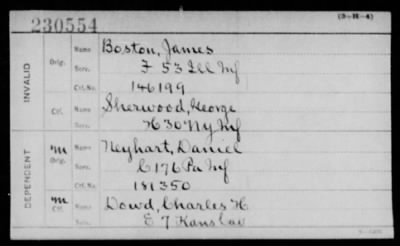 230554 (3-H-4)
INVALID
Orig. Name Boston, James
Serv. F 53 Ill Inf
Ctf. No. 146199
Ctf. Name Sherwood, George
Serv. H 30 Ny Inf
DEPENDENT
M Orig. Name Neyhart, Daniel
Serv. C 176 Pa Inf
Ctf. No. 181350
M Ctf. Name Dowd, Charles H.
Serv. E 7 Kans Cav